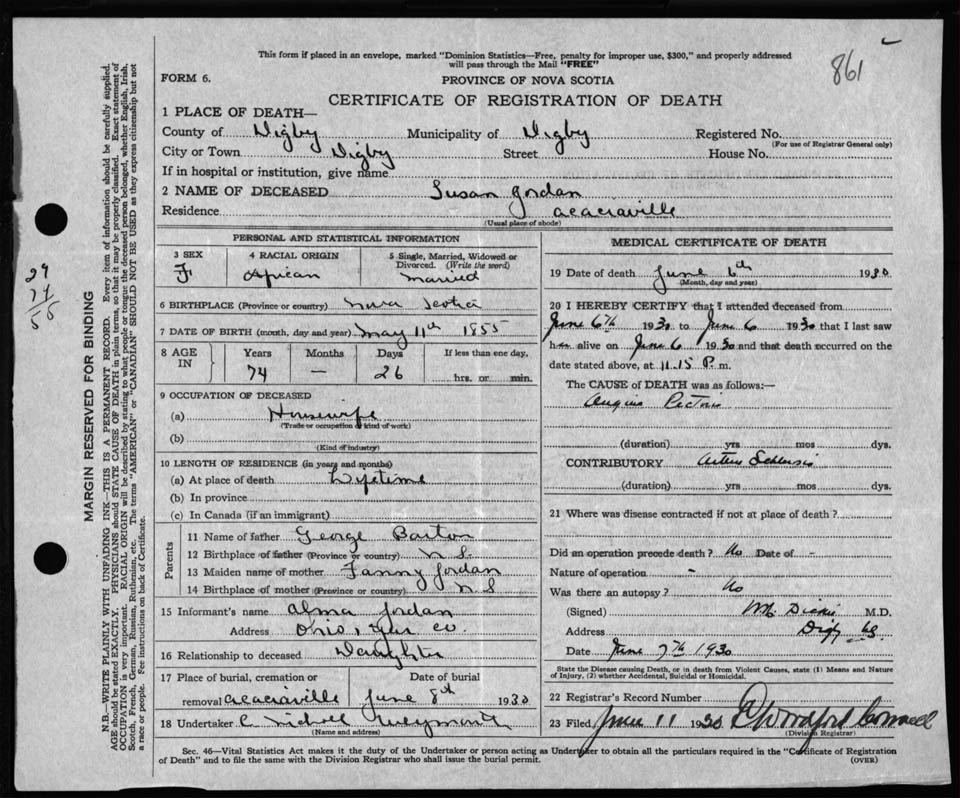 861
This form if placed in an envelope, marked "Dominion Statistics—Free, penalty for improper use, $300," and properly addressed
will pass through the Mail "FREE"
FORM 6.
PROVINCE OF NOVA SCOTIA
CERTIFICATE OF REGISTRATION OF DEATH
1 PLACE OF DEATH—
County of Digby Municipality of Digby Registered No.
(For use of Registrar General only)
City or Town Digby Street House No.
If in hospital or institution, give name
2 NAME OF DECEASED Susan Jordan
Residence Acaciaville
(Usual place of abode)
PERSONAL AND STATISTICAL INFORMATION
3 SEX 4 RACIAL ORIGIN 5 Single, Married, Widowed or
Divorced. (Write the word)
F African Married
6 BIRTHPLACE (Province or country) Nova Scotia
7 DATE OF BIRTH (month, day and year) May 11th 1855
8 AGE IN Years Months Days If less than one day,
74 — 26 hrs. or min.
9 OCCUPATION OF DECEASED
(a) Housewife
(Trade or occupation or kind of work)
(b)
(Kind of industry)
10 LENGTH OF RESIDENCE (in years and months)
(a) At place of death Lifetime
(b) In province
(c) In Canada (if an immigrant)
Parents
11 Name of father George Barton
12 Birthplace of father (Province or country) N S.
13 Maiden name of mother Fanny Jordan
14 Birthplace of mother (Province or country) N S
15 Informant's name Alma Jordan
Address Ohio, Yar Co.
16 Relationship to deceased Daughter
17 Place of burial, cremation or Date of burial
removal Acaciaville June 8th 1930
18 Undertaker Weymouth
(Name and address)
MEDICAL CERTIFICATE OF DEATH
19 Date of death June 6th 1930
(Month, day and year)
20 I HEREBY CERTIFY that I attended deceased from
June 6th 1930 to June 6 1930 that I last saw
h alive on June 6 1930 and that death occurred on the
date stated above, at 11.15 P. m.
The CAUSE of DEATH was as follows:—
Angina Pectoris
(duration) yrs mos dys.
CONTRIBUTORY Arterio Sclerosis
(duration) yrs. mos. dys.
21 Where was disease contracted if not at place of death?
Did an operation precede death? No Date of -
Nature of operation -
Was there an autopsy? No
(Signed) Dickie M.D.
Address Digby NS
Date June 7th 1930
State the Disease causing Death, or in death from Violent Causes, state (1) Means and Nature
of Injury, (2) whether Accidental, Suicidal or Homicidal.
22 Registrar's Record Number
23 Filed June 11 1930
(Division Registrar)
Sec. 46—Vital Statistics Act makes it the duty of the Undertaker or person acting as Undertaker to obtain all the particulars required in the "Certificate of Registration
of Death" and to file the same with the Division Registrar who shall issue the burial permit.
(OVER)
MARGIN RESERVED FOR BINDING
N.B.—WRITE PLAINLY WITH UNFADING INK—THIS IS A PERMANENT RECORD. Every item of information should be carefully supplied.
AGE should be stated EXACTLY. PHYSICIANS should STATE CAUSE OF DEATH in plain terms, so that it may be properly classified. Exact statement of
OCCUPATION is very important. RACIAL ORIGIN will be described by stating to what people or tongue the deceased person belonged, whether English, Irish,
Scotch, French, German, Russian, Ruthenian, etc. The terms "AMERICAN" or "CANADIAN" SHOULD NOT BE USED as they express citizenship but not
a race or people. Fee instructions on back of Certificate.
74
55